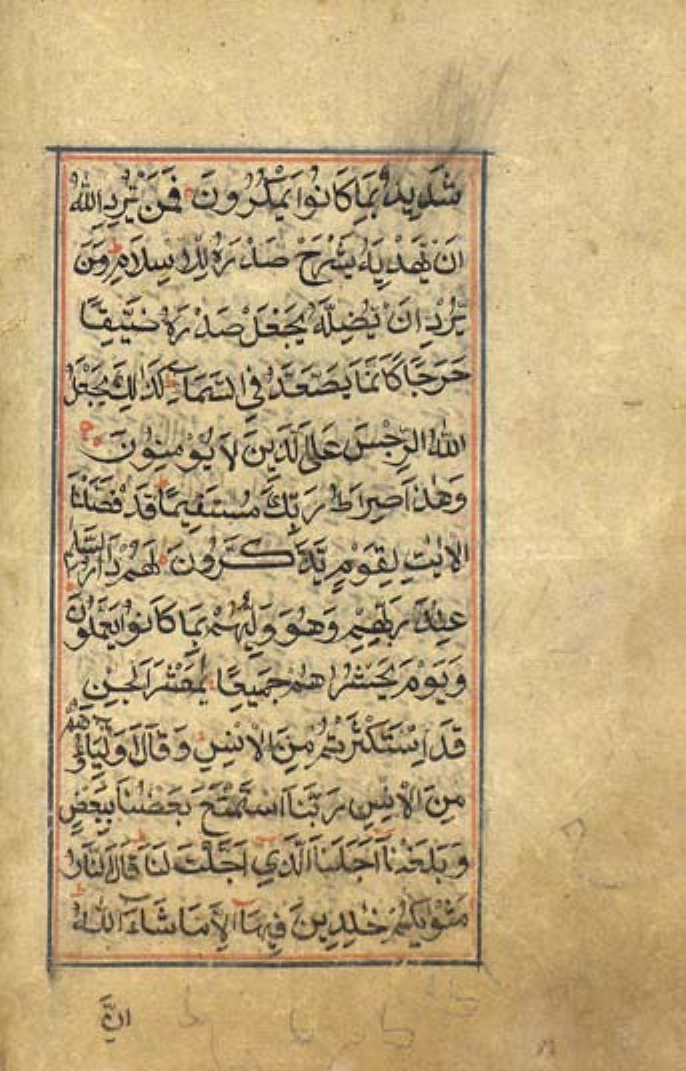 شَدِيدٌ بِمَا كَانُوا يَمْكُرُونَ فَمَنْ يُرِدِ اللّٰهُ
اَنْ يَهْدِيَهُ يَشْرَحْ صَدْرَهُ لِلْاِسْلَامِ وَمَنْ
يُرِدْ اَنْ يُضِلَّهُ يَجْعَلْ صَدْرَهُ ضَيِّقًا
حَرَجًا كَاَنَّمَا يَصَّعَّدُ فِي السَّمَاءِ كَذَالِكَ يَجْعَلُ
اللّٰهُ الرِّجْسَ عَلَى الَّذِينَ لَا يُؤْمِنُونَ
وَهٰذَا صِرَاطُ رَبِّكَ مُسْتَقِيمًا قَدْ فَصَّلْنَا
الْاٰيٰتِ لِقَوْمٍ يَذَّكَّرُونَ لَهُمْ دَارُ السَّلٰمِ
عِنْدَ رَبِّهِمْ وَهُوَ وَلِيُّهُمْ بِمَا كَانُوا يَعْمَلُونَ
وَيَوْمَ يَحْشُرُهُمْ جَمِيعًا يٰمَعْشَرَ الْجِنِّ
قَدِ اسْتَكْثَرْتُمْ مِنَ الْاِنْسِ وَقَالَ اَوْلِيَاؤُهُمْ
مِنَ الْاِنْسِ رَبَّنَا اسْتَمْتَعَ بَعْضُنَا بِبَعْضٍ
وَبَلَغْنَا اَجَلَنَا الَّذِي اَجَّلْتَ لَنَا قَالَ النَّارُ
مَثْوٰيكُمْ خٰلِدِينَ فِيهَا اِلَّا مَا شَاءَ اللّٰهُ
اِنَّ